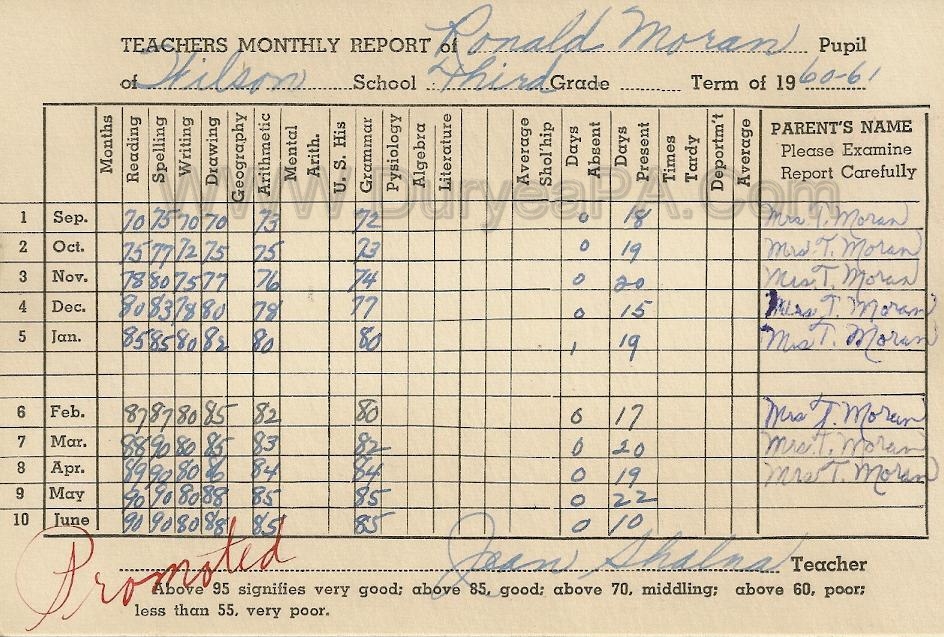 TEACHERS MONTHLY REPORT of Ronald Moran Pupil
of Wilson School Third Grade Term of 1960-61
Months Reading Spelling Writing Drawing Geography Arithmetic Mental Arith. U. S. His Grammar Pysiology Algebra Literature Average Shol'hip Days Absent Days Present Times Tardy Deportm't Average PARENT'S NAME
Please Examine
Report Carefully
www.DuryeaPA.com
1 Sep. 70 75 70 70 73 72 0 18 Mrs T. Moran
2 Oct. 75 77 72 75 75 73 0 19 Mrs T. Moran
3 Nov. 78 80 75 77 76 74 0 20 Mrs T. Moran
4 Dec. 80 83 78 80 78 77 0 15 Mrs T. Moran
5 Jan. 85 85 80 82 80 80 1 19 Mrs T. Moran
6 Feb. 87 87 80 85 82 80 0 17 Mrs T. Moran
7 Mar. 88 90 80 85 83 82 0 20 Mrs T. Moran
8 Apr. 89 90 80 86 84 84 0 19 Mrs T. Moran
9 May 90 90 80 88 85 85 0 22
10 June 90 90 80 88 85 85 0 10
Promoted
Jean Teacher
Above 95 signifies very good; above 85, good; above 70, middling; above 60, poor;
less than 55, very poor.